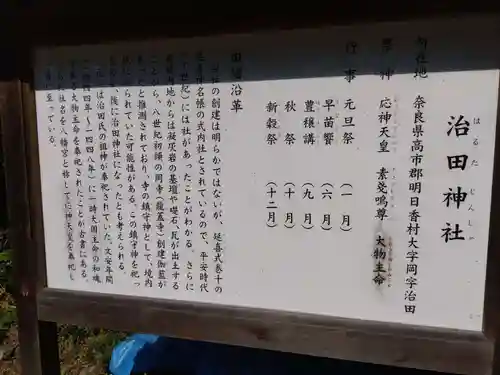 治田神社
はるた じんしゃ
所在地 奈良県高市郡明日香村大字岡字治田
祭神 応神天皇 素戔嗚尊 大物主命
行事 元旦祭 (一月)
早苗饗 (六月)
豊穣講 (九月)
秋祭 (十月)
新穀祭 (十二月)
由緒沿革
の創建は明らかではないが、延喜式巻十の
神名帳の式内社とされているので、平安時代
世紀)には社があったことがわかる。さらに
境内地からは凝灰岩の基壇や礎石、瓦が出土する
ことから、八世紀初頭の岡寺(龍蓋寺)創建伽藍が
と推測されており、寺の鎮守神として、境内
られていた可能性がある。この鎮守神を祀っ
、後に治田神社になったとも考えられる。
は治田氏の祖神が奉祀されていた。文安年間
四四年~一四四八年)に一時大国主命の和魂
大物主命を奉祀されたことが古書にある。
社名を八幡宮と称して応神天皇を奉祀し
に至っている。